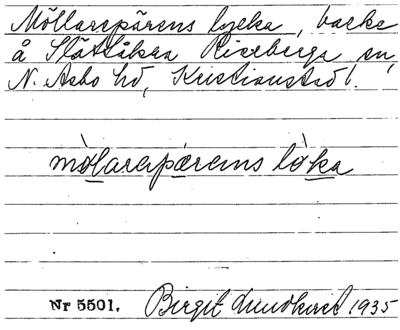 Möllarepärens lycka, backe
å Slättåkra Riseberga sn,
N. Åsbo hd, Kristianstads l.
mòlarepærens lòka
Nr 5501. Birgit Lundkvist 1935